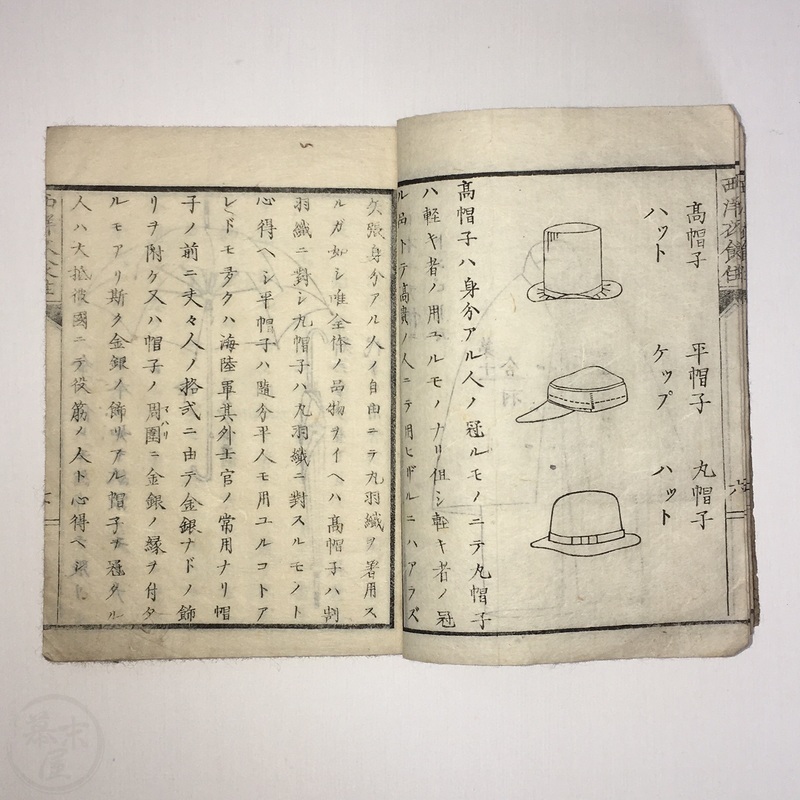 西洋衣食住
高帽子
ハット
平帽子
ケップ
丸帽子
ハット
高帽子ハ身分アル人ノ冠ルモノニテ丸帽子
ハ軽キ者ノ用ユルモノナリ但シ軽キ者ノ冠
ル品トテ高貴ノ人ニテ用ヒザルニハアラズ
矢張身分アル人ノ自由ニテ丸羽織ヲ着用ス
ルガ如シ唯全体ノ品物ヲイヘハ高帽子ハ割
羽織ニ對シ丸帽子ハ丸羽織ニ對スルモノト
心得ヘシ平帽子ハ随分平人モ用ユルコトア
レドモ多クハ海陸軍其外士官ノ常用ナリ帽
子ノ前ニ夫々人ノ格式ニ由テ金銀ナドノ飾
リヲ附ケ又ハ帽子ノ周圍ニ金銀ノ縁ヲ付タ
マハリ
ルモアリ斯ク金銀ノ飾リアル帽子ヲ冠タル
人ハ大抵彼國ニテ役筋ノ人ト心得ヘシ
西洋衣食住
幕末屋